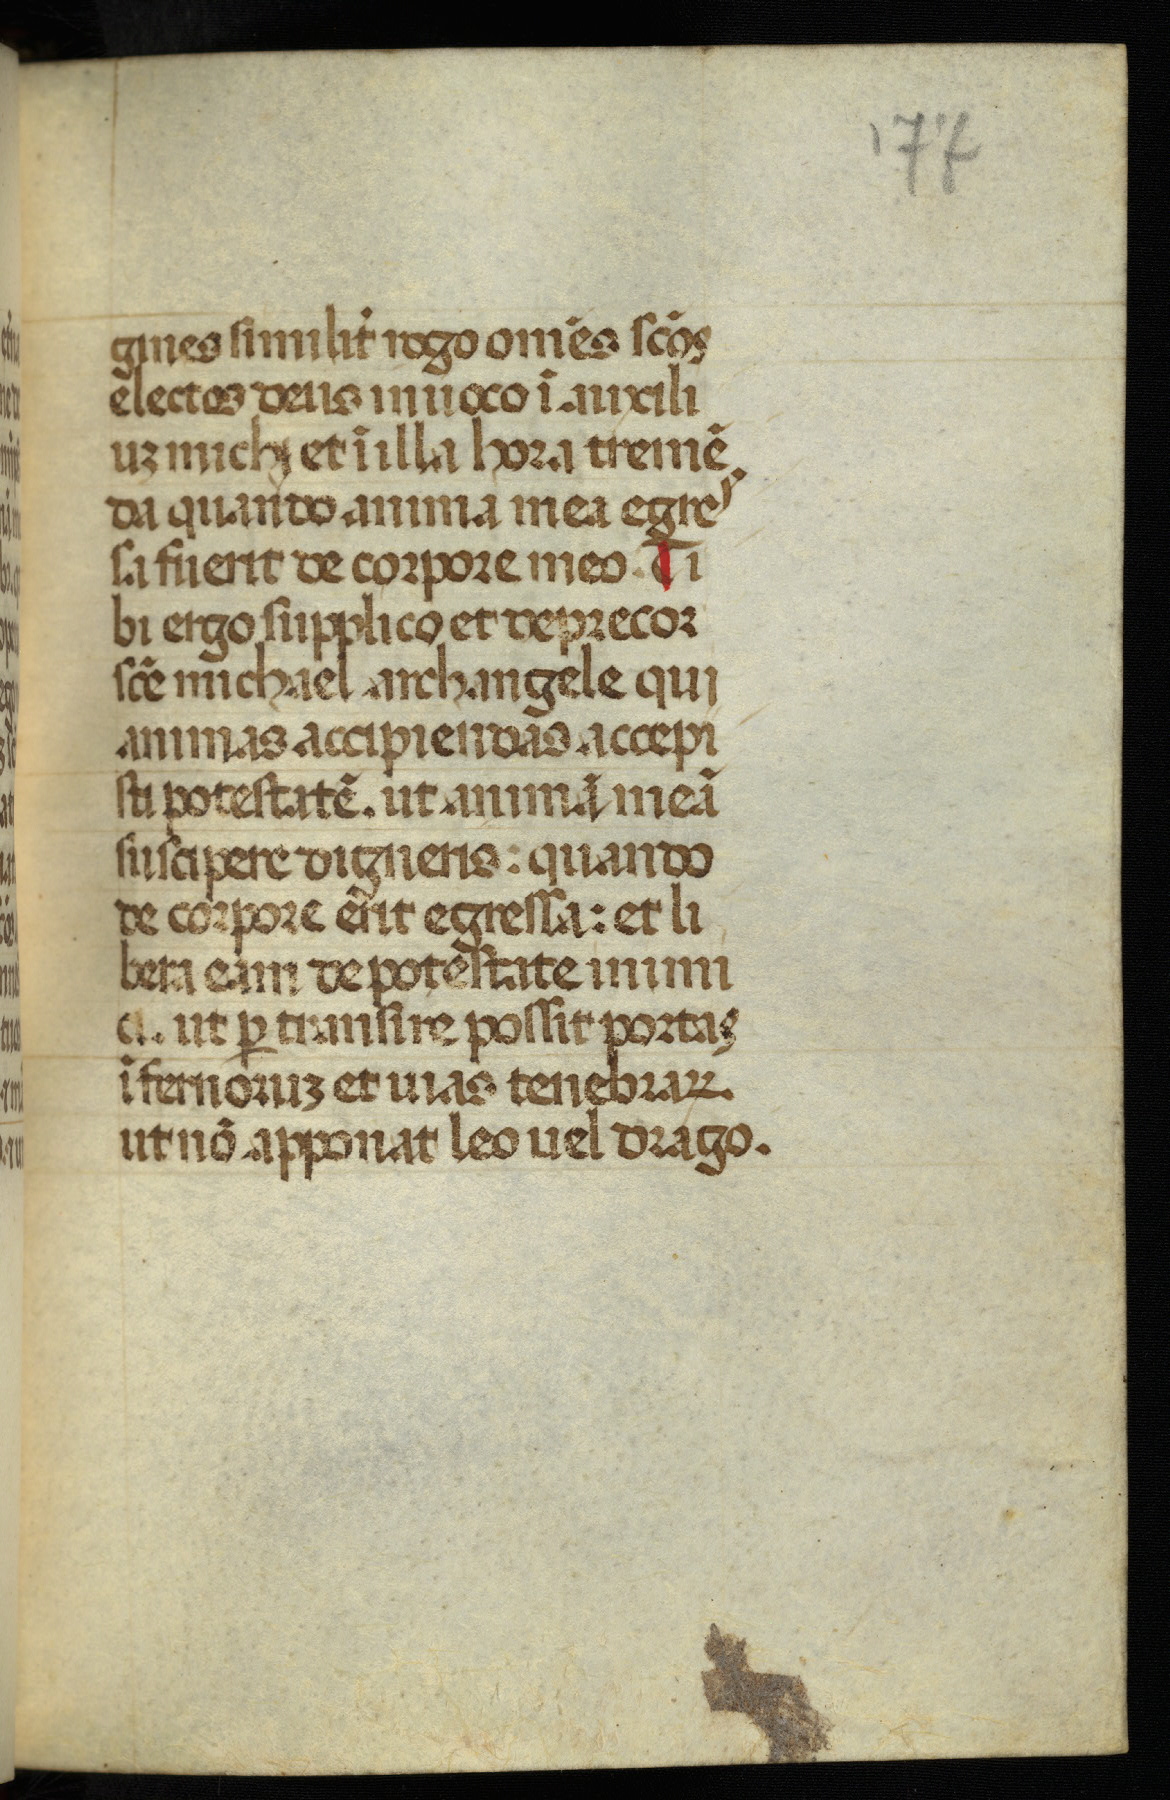 177
gines similit̉ rogo om̄es sc̄os
electos deus inuoco ī auxili
uꝫ michi et ī illa hora tremē
da quando anima mea egreſ
sa fuerit de corpore meo. Ti
bi ergo supplico et deprecor
sc̄e michael archangele qui
animas accipiendas accepi
sti potestatē. ut animā meā
suscipere digneris: quando
de corpore erit egressa: et li
bera eam de potestate inimi
ci. ut ꝑ transire possit portas
īfernoruꝫ et uias tenebraꝝ.
ut nō apponat leo uel drago.